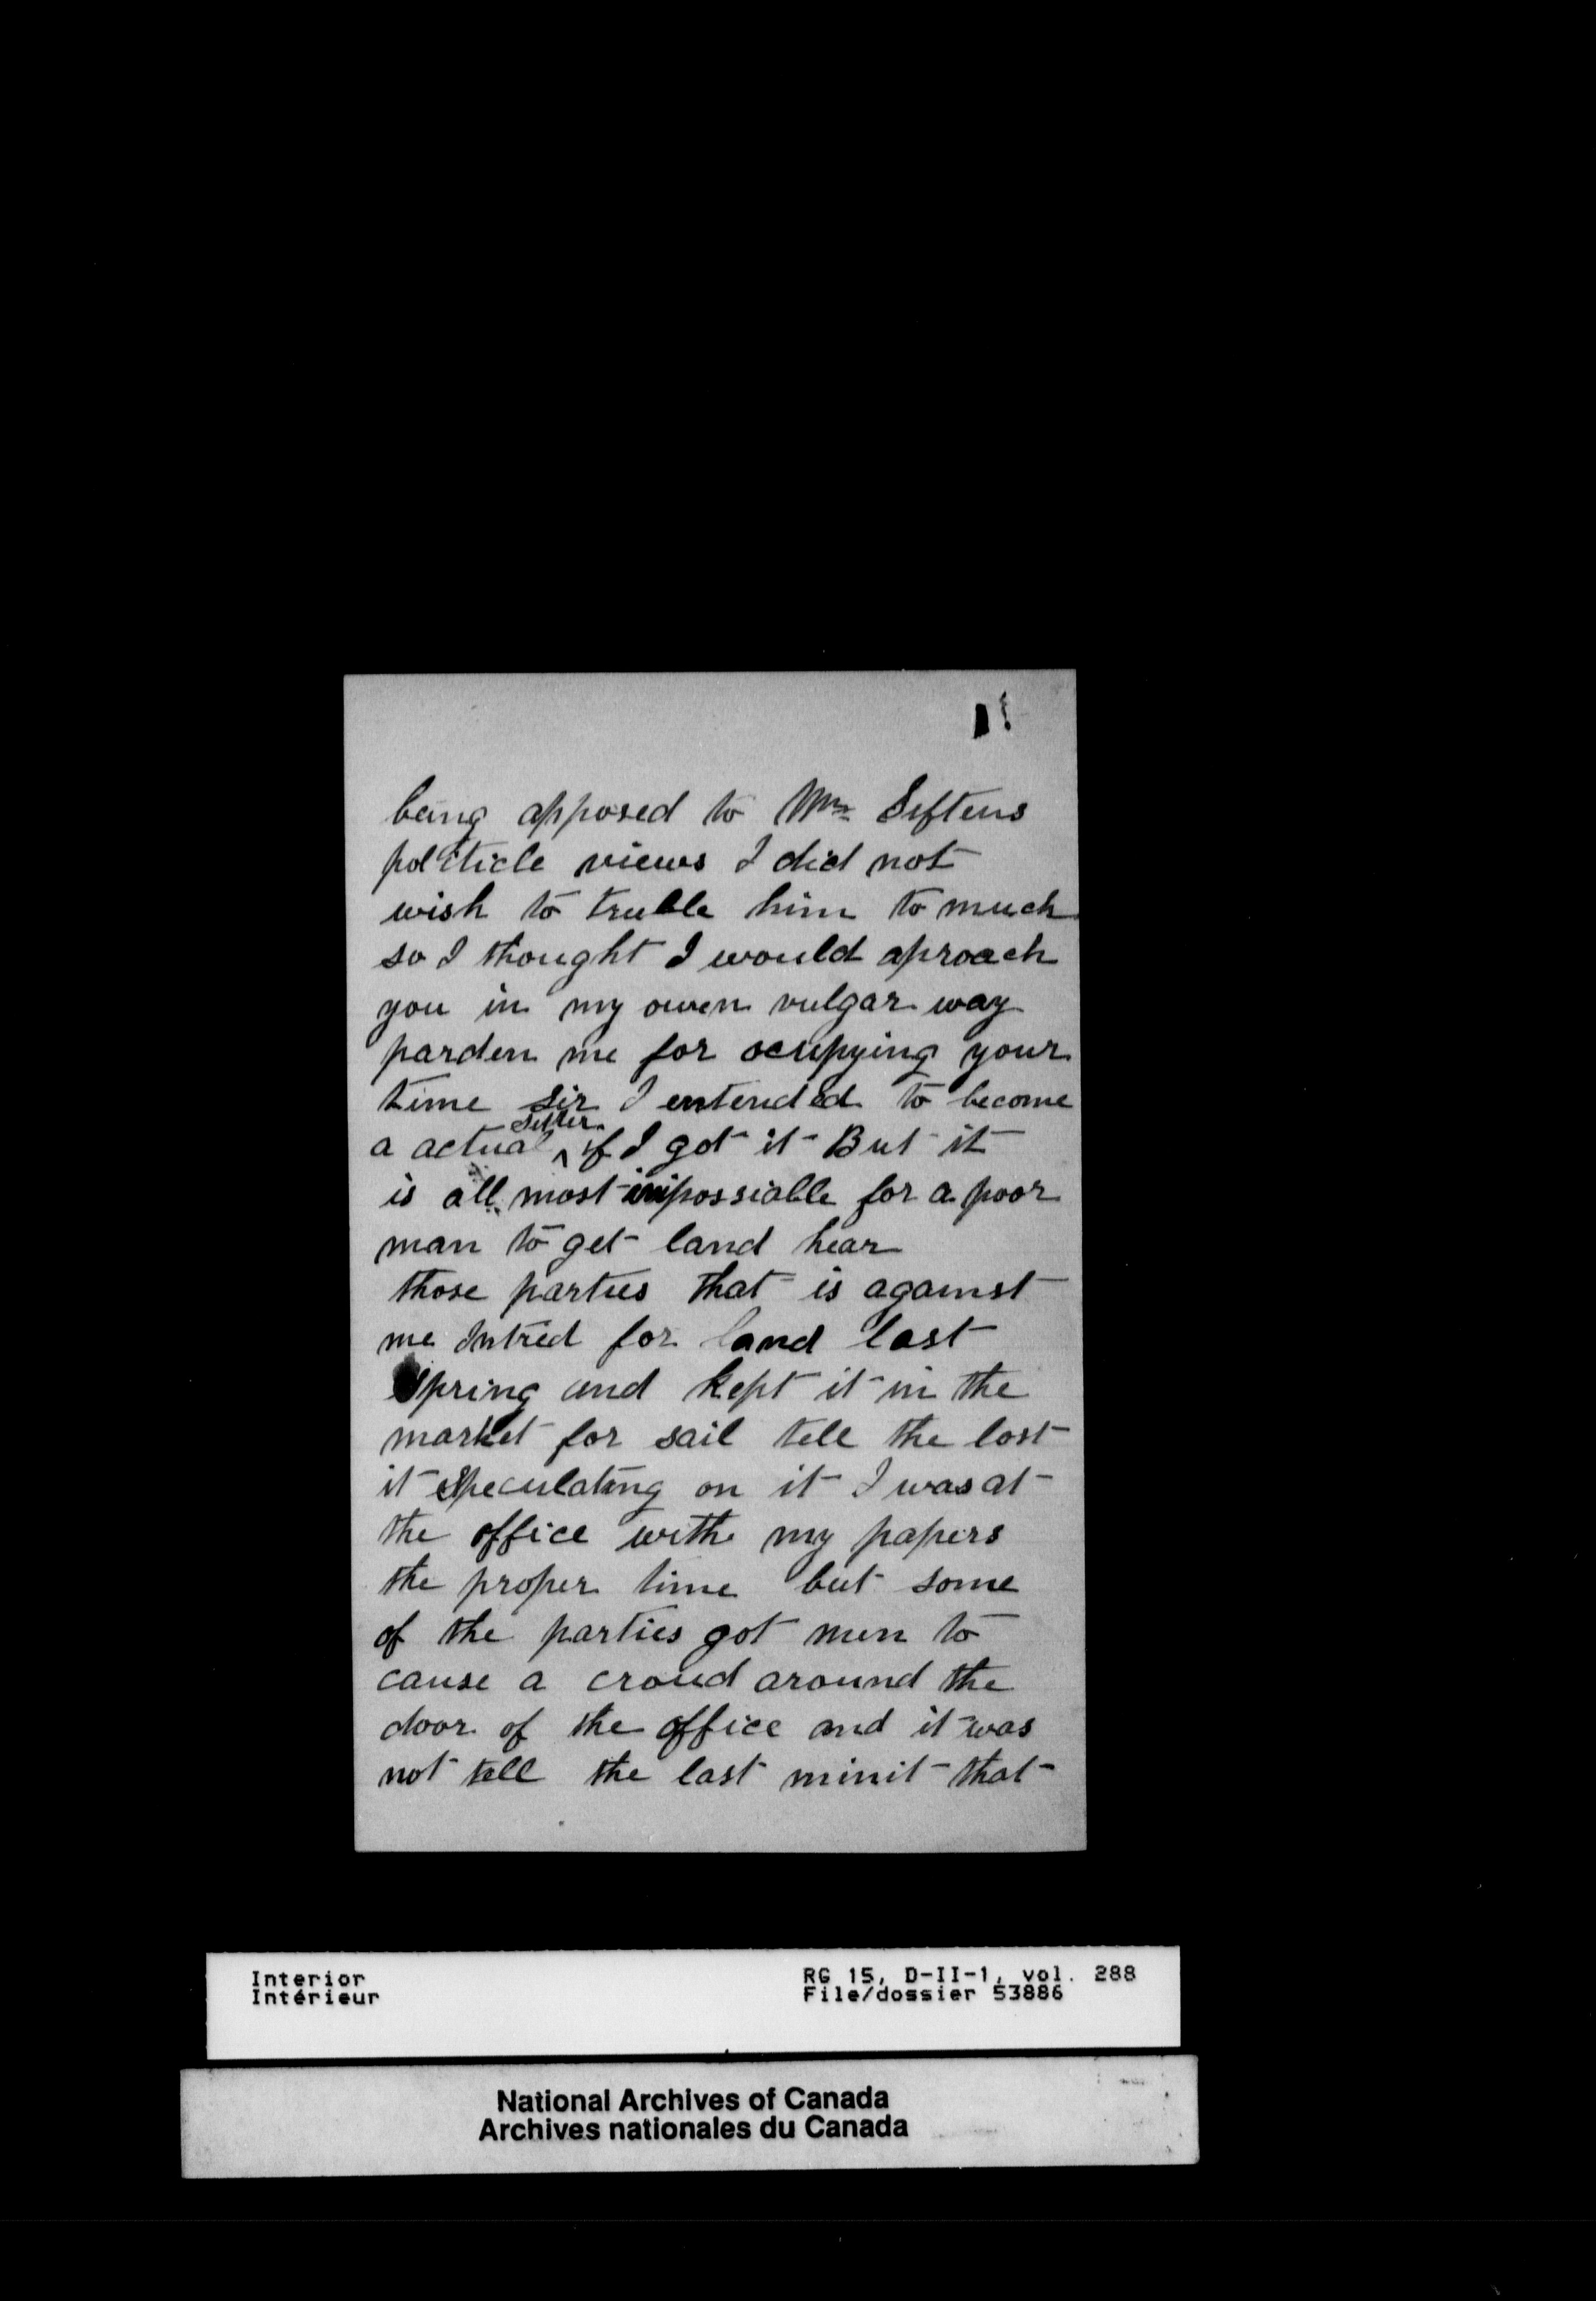 being apposed to Mr Siftens
politicle views I did not
wish to truble him to much
so I thought I would aproach
you in my owen vulgar way
parden me for ocupying your
time Sir I entended to become
a actual settler if I got it But it
is all most impossiable for a poor
man to get land hear
those parties that is against
me Intred for land last
Spring and kept it in the
market for sail tell the lost
it Speculating on it I was at
the office withe my papers
the proper time but some
of the parties got men to
cause a croud around the
door of the office and it was
not tell the last minit that
Interior
Intérieur
RG 15, D-II-1, vol. 288
File/dossier 53886
National Archives of Canada
Archives nationales du Canada